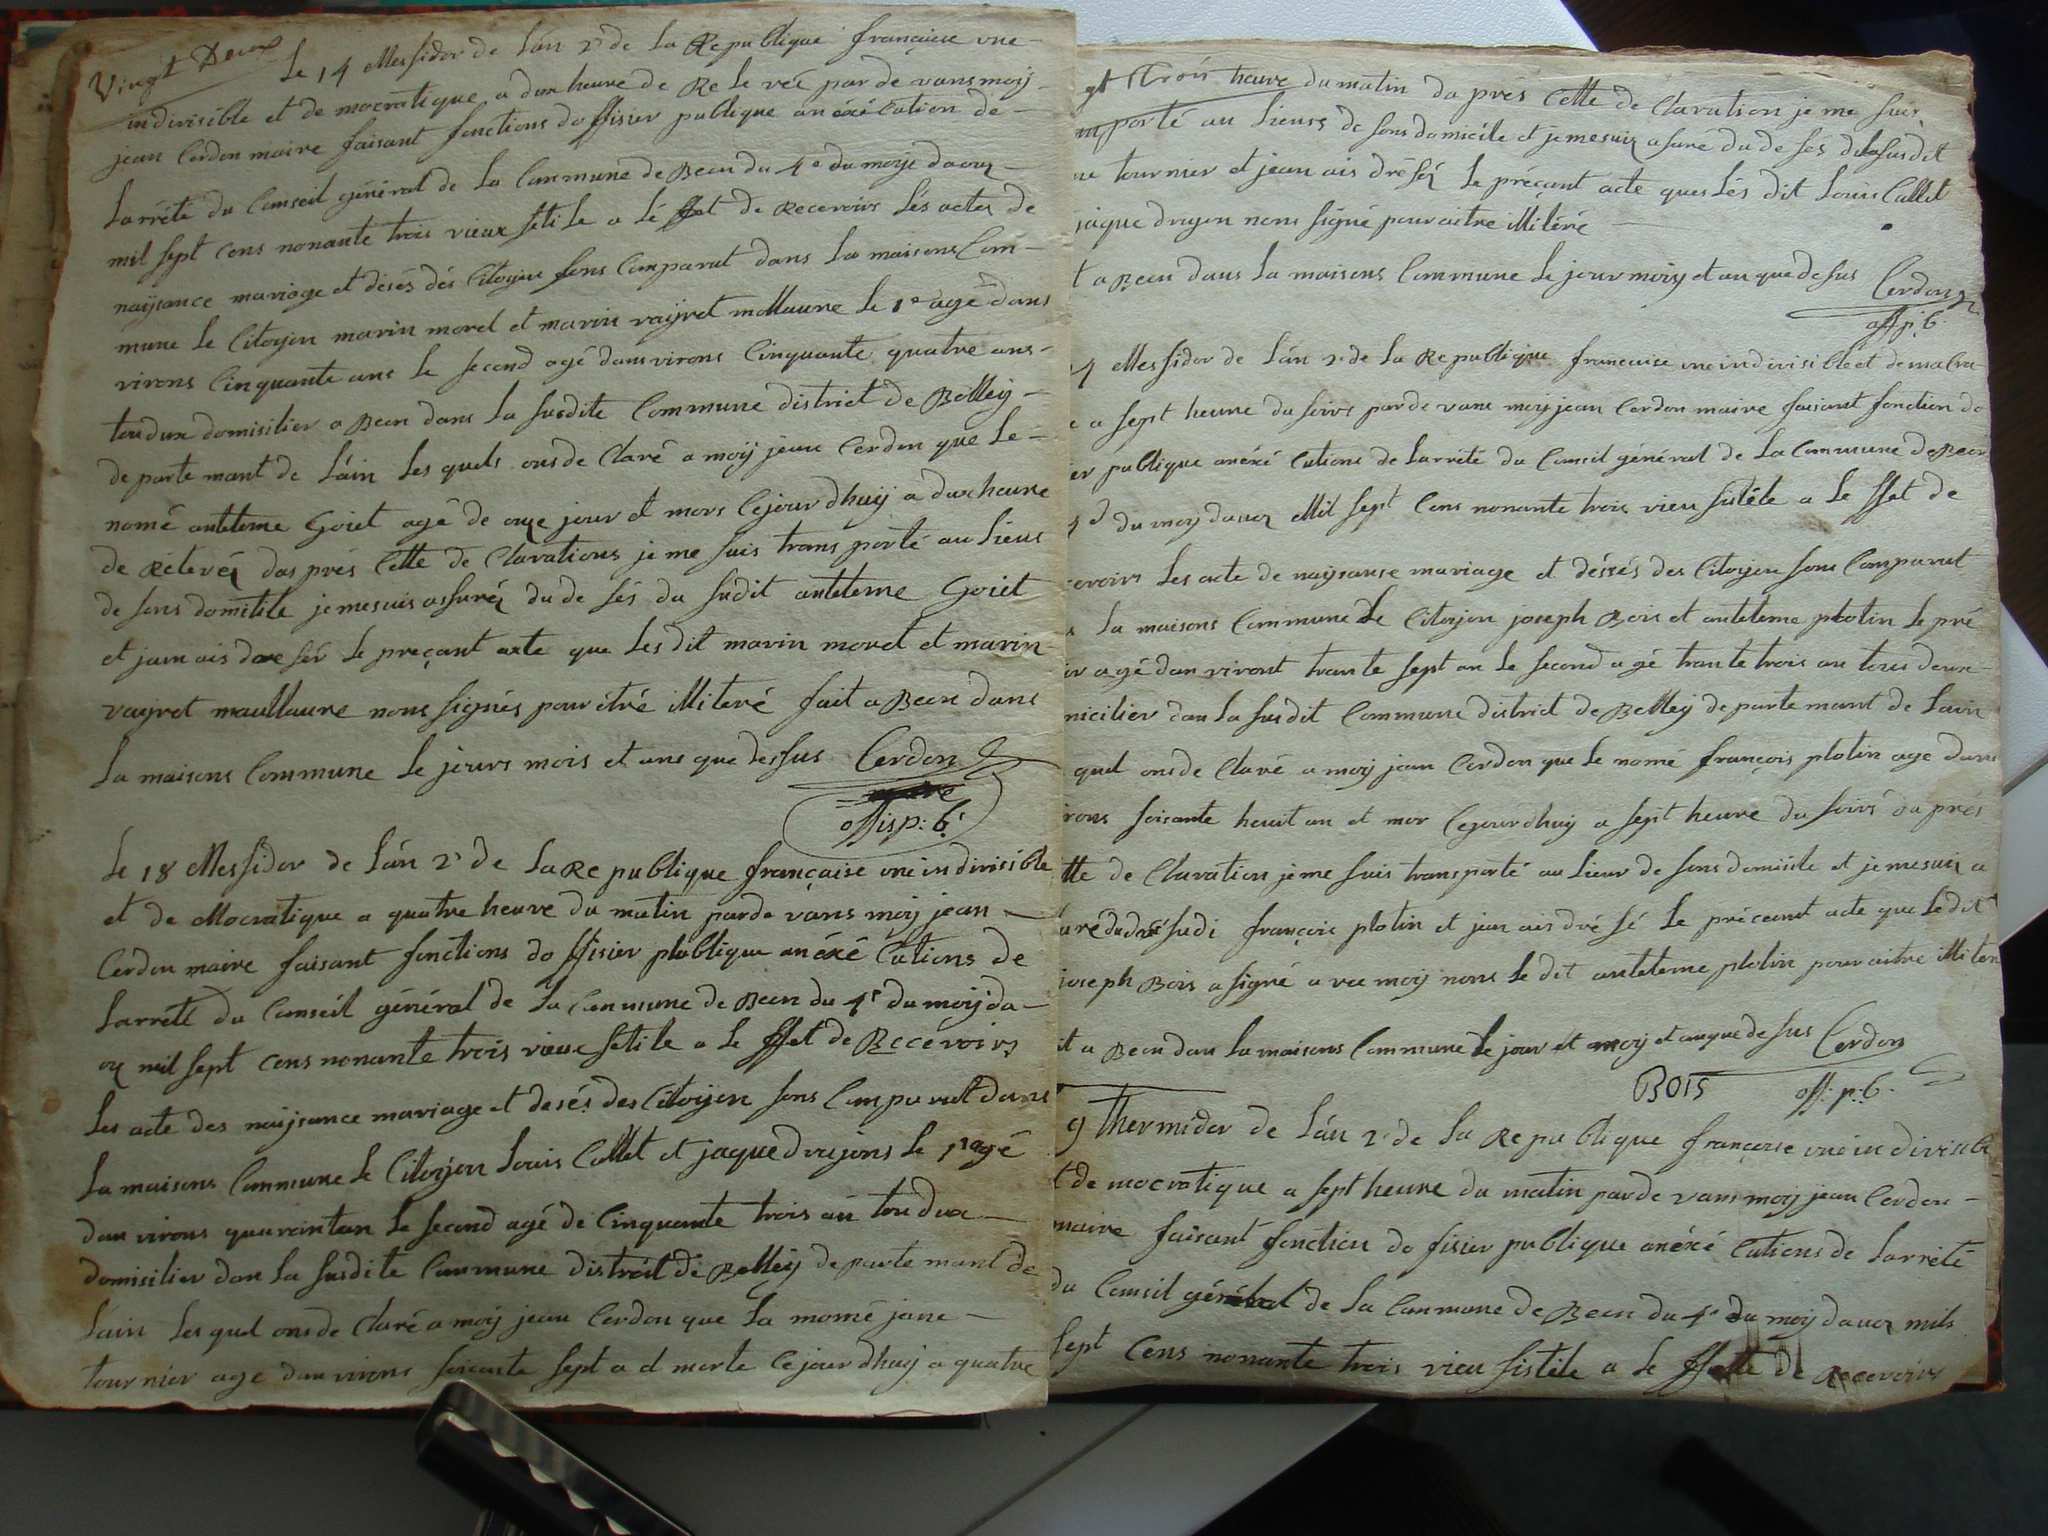 Vingt Deux
Le 14 Messidor de Lán 2e de La Republique francaise une
indivisible et de mocratique a dux heure de Re le veé par de vans moij
jean Cerdon maire faisant fonctions do ffisier publique an éxé Cution de
Larrété du Conseil général de La Commune de Beon du 4e du moije daoux
mil sept cens nonante trois vieux stile a lé ffet de Recevoirs Lés actes de
naijsance mariage et désés dés Citoyens sons Comparut dans La maisons Com
mune Le Citoyen marin morel et marin vayret mollaure Le 1e agé dans
virons Cinquante ans Le second agé dans virons Cinquante quatre ans
tou dux domisilier a Beon dans La susdite Commune district de Belley
de parte mant de Láin Les quels ons de Claré a moij jean Cerdon que Le
nomé anteteme Goiet agé de onze jour et mors Cejour dhuij a dux heure
de Relevéz das prés Cette de Clarations je me suis trans porté au Lieus
de sons domitile je me suis assuréz du de sés du sudit anteteme Goiet
et jam ais dresér Le preçant acte que Les dit marin morel et marin
vayret maullaure nons signés pour étré illiteré fait a Beon dans
La maisons Commune Le jours mois et ans que dessus Cerdon
offisp: b:
Le 18 Messidor de Lán 2e de La Re publique française une indivisible
et de Mocratique a quatre heure du matin par de vans moij jean
Cerdon maire faisant fonctions do ffisier publique an éxé Cutions de
Larrété du Conseil général de La Commune de Beon du 4e du moij da
ox mil sept cens nonante trois vieux stile a Le ffet de Recevoirs
Les acte des naijsance mariage et desés des Citoyen sons Comparut dans
La maisons Commune Le Citoyen Louis Collet et jaque drujons Le 1r agé
dan virons quarantan Le second agé de Cinquante trois an tou dux
domisilier dan La susdite Commune distreit de Belley de parte mant de
Lain Les quel ons de Claré a moij jean Cerdon que La nomé jane
tournier age dan virons soisante sept a et morte Cejour dhuij a quatre
gt trois heure du matin da prés Cette de Claration je me suis
mporté au Lieurs de sons domicile et je me suis asuré du de sés du susdit
ne tournier et jean ais dréséz Le préçant acte ques Lés dit Louis Collet
jaque drujon nons signé pour aitre illitéré
t a Beon dans La maisons Commune Le jour moij et an que desus Cerdon
off: p: b:
4 Messidor de Lán 2e de La Republique francaise une indivisible et de mocra
e a sept heure du soirs par de vans moij jean Cerdon maire faisant fonction do
er publique an éxé Cutions de Larrété du Conseil général de La Commune de Beon
4e du moij daux Mil sept Cens nonante trois vieu stile a Le ffet de
cevoirs Les acte de naijsanse mariage et désés des Citoyen sons Comparut
s La maisons Commune Le Citoyen joseph Bois et anteteme plotin Le pré
er agé dan viront trante sept an Le second agé trante trois an tous deux
micilier dan La susdit Commune district de Belley de parte mant de Lain
quel ons de Claré a moij jean Cerdon que Le nomé françois plotin age dans
irons soisante heuit an et mor Cejourdhuij a sept heure du soirs da prés
tte de Claration je me suis transporté au Lieur de sons domicile et je me suis a
uré du susdi françois plotin et jan ais dré sé Le préceant acte que Le dit
joseph Bois a signé a vec moij nons Le dit anteteme plotin pour aitre illiteré
it a Beon dan La maisons Commune Le jour et moij et an que desus Cerdon
BOIS off: p: b:
9 thermidor de Lán 2e de La Republique françoise une in divisible
t de mocratique a sept heure du matin par de vans moij jean Cerdon
maire faisant fonction do fisier publique an éxé Cutions de Larrété
du Conseil général de La Commune de Beon du 4e du moij daux mils
sept Cens nonante trois vieu sistile a Le ffette de Recevoirs